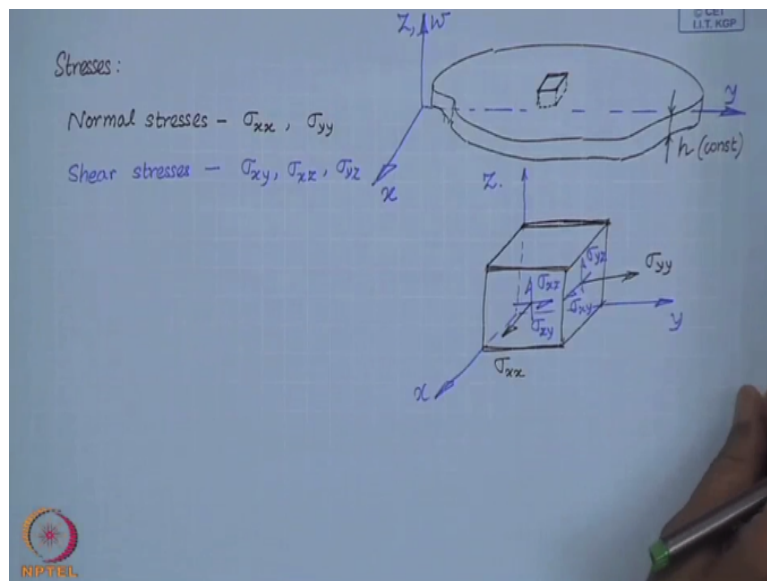 © CET
I.I.T. KGP
Stresses:
Normal stresses - σxx, σyy
Shear stresses - σxy, σxz, σyz
Z, W
y
x
h (const)
Z.
σyz
σyy
σxz
σxy
σxy
y
σxx
x
NPTEL